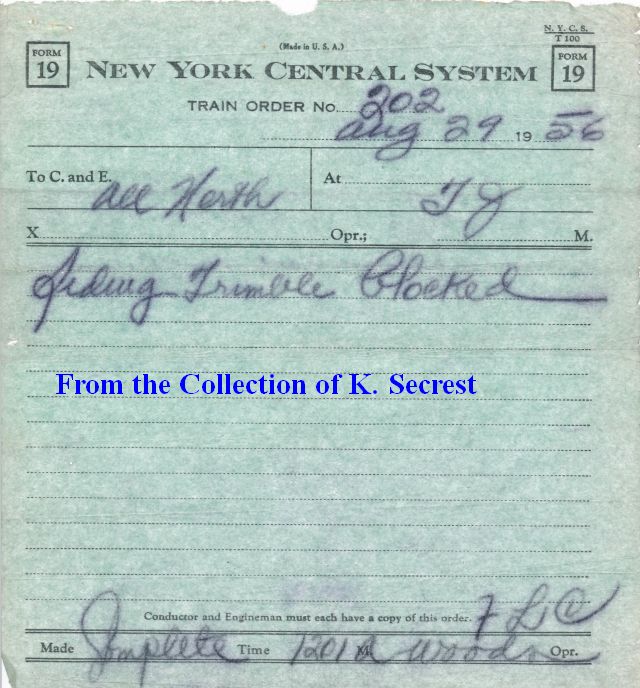 N. Y. C. S.
T 100
(Made in U. S. A.)
FORM 19 NEW YORK CENTRAL SYSTEM FORM 19
TRAIN ORDER No. 202
Aug 29 1956
To C. and E. All North At TY
X Opr.; M.
Siding Trimble Blocked
From the Collection of K. Secrest
Conductor and Engineman must each have a copy of this order. FLC
Made Complete Time 1201 A M. Woods Opr.